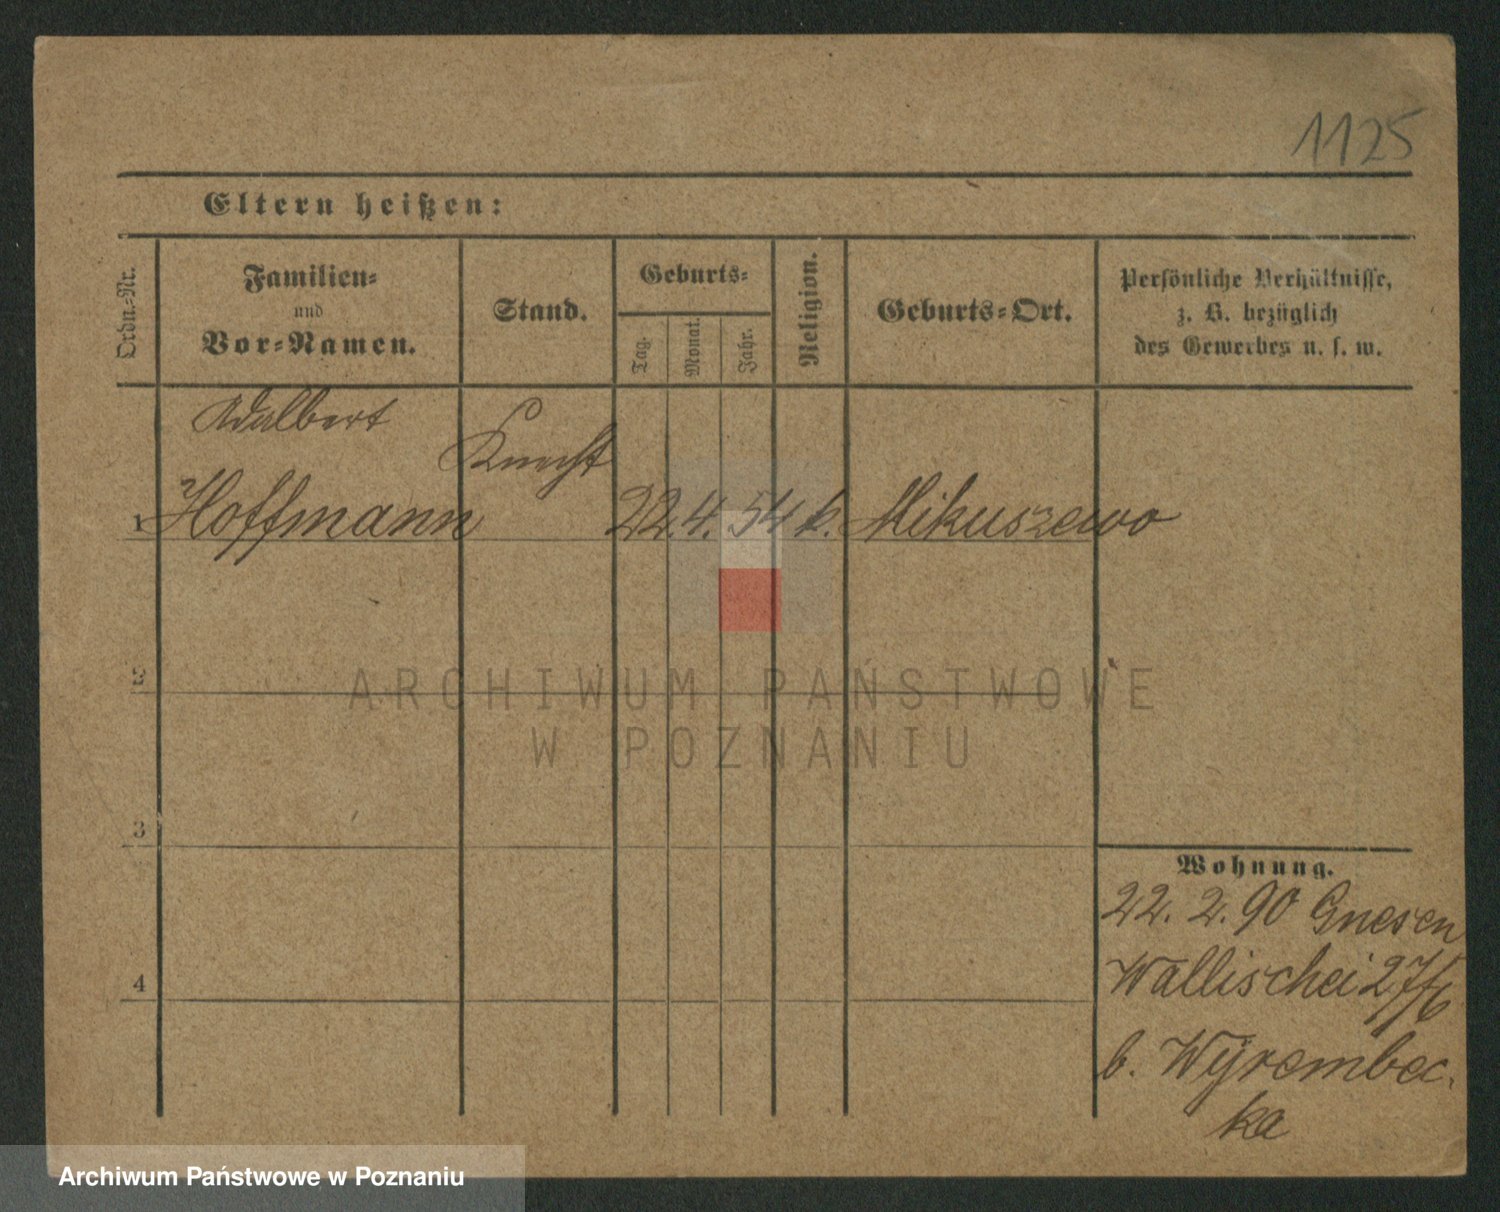 1125
Eltern heißen:
Ordn.-Nr.
Familien-
und
Vor-Namen.
Stand.
Geburts-
Tag.
Monat.
Jahr.
Religion.
Geburts-Ort.
Persönliche Verhältnisse,
z. B. bezüglich
des Gewerbes u. s. w.
Adalbert
Knecht
1 Hoffmann 22. 4. 54 k. Mikuszewo
2
ARCHIWUM PAŃSTWOWE
W POZNANIU
3
Wohnung.
22. 2. 90 Gnesen
Wallischei 27/6
b. Wyrembec
ka
4
Archiwum Państwowe w Poznaniu